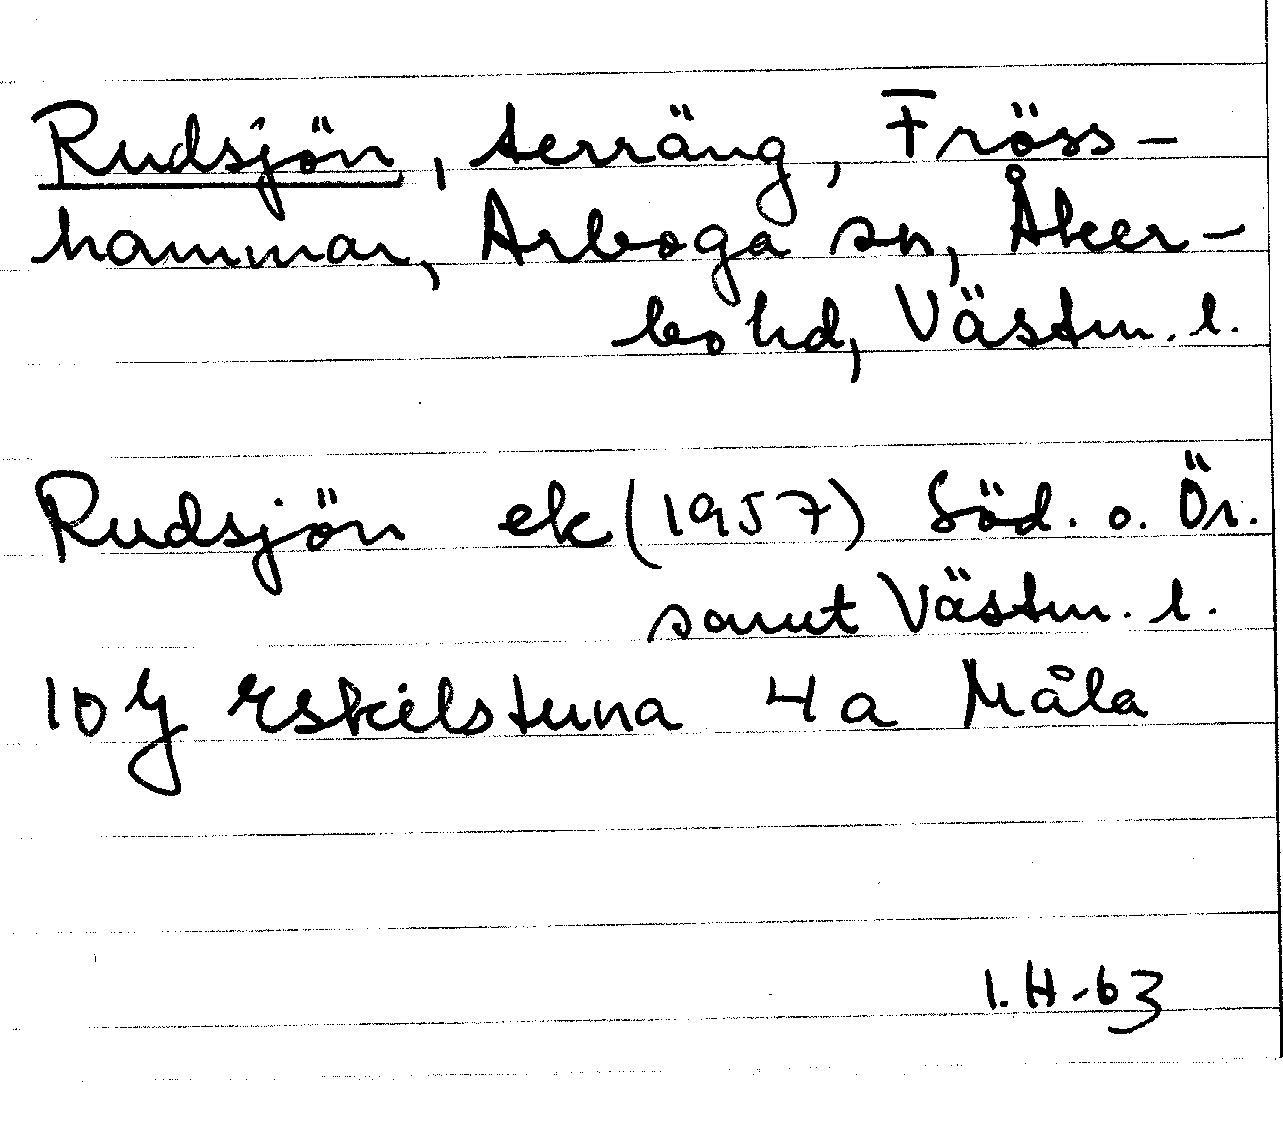 Rudsjön, terräng, Fröss-
hammar, Arboga sn, Åker-
bo hd, Västm. l.
Rudsjön ek (1957) Söd. o. Ör.
samt Västm. l.
10 G Eskilstuna 4 a Måla
I. H-63